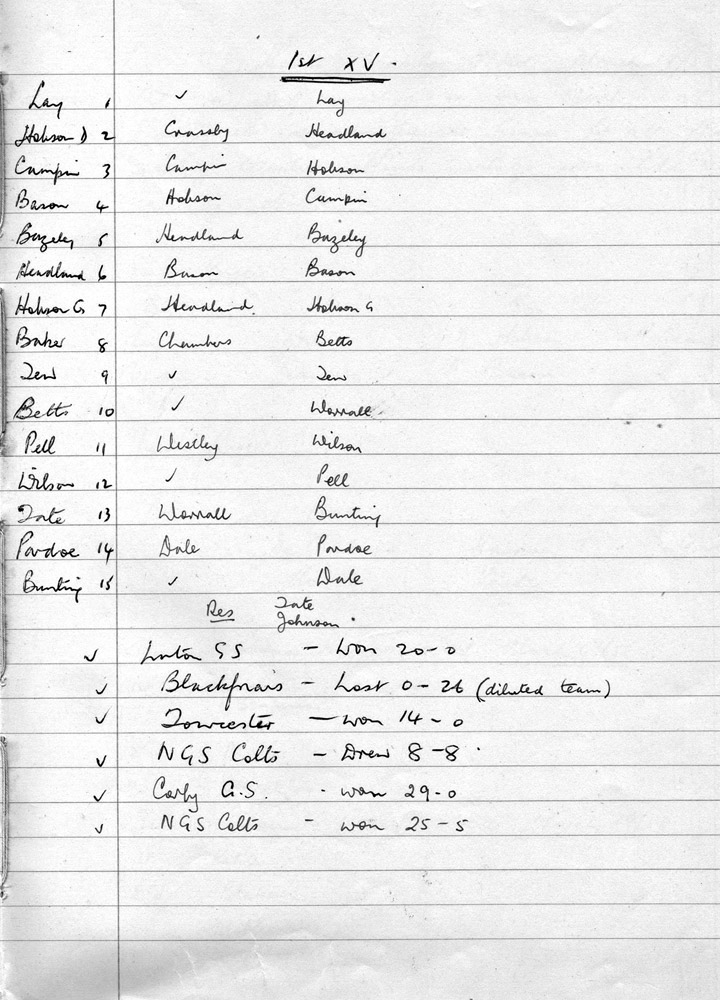 1st XV.
Lay 1 ✓ Lay
Hobson D 2 Crassby Headland
Campin 3 Campin Hobson
Bason 4 Hobson Campin
Bazeley 5 Headland Bazeley
Headland 6 Bason Bason
Hobson G 7 Headland. Hobson G
Baker 8 Chambers Betts
Tew 9 ✓ Tew
Betts 10 ✓ Worrall
Pell 11 Westley Wilson
Wilson 12 ✓ Pell
Tate 13 Worrall Bunting
Pardoe 14 Dale Pardoe
Bunting 15 ✓ Dale
Res Tate
Johnson.
✓ Luton SS - Won 20-0
✓ Blackfriars - Lost 0-26 (diluted team)
✓ Towcester - won 14-0
✓ NGS Colts - Drew 8-8
✓ Corby G.S. - won 29-0
✓ NGS Colts - won 25-5